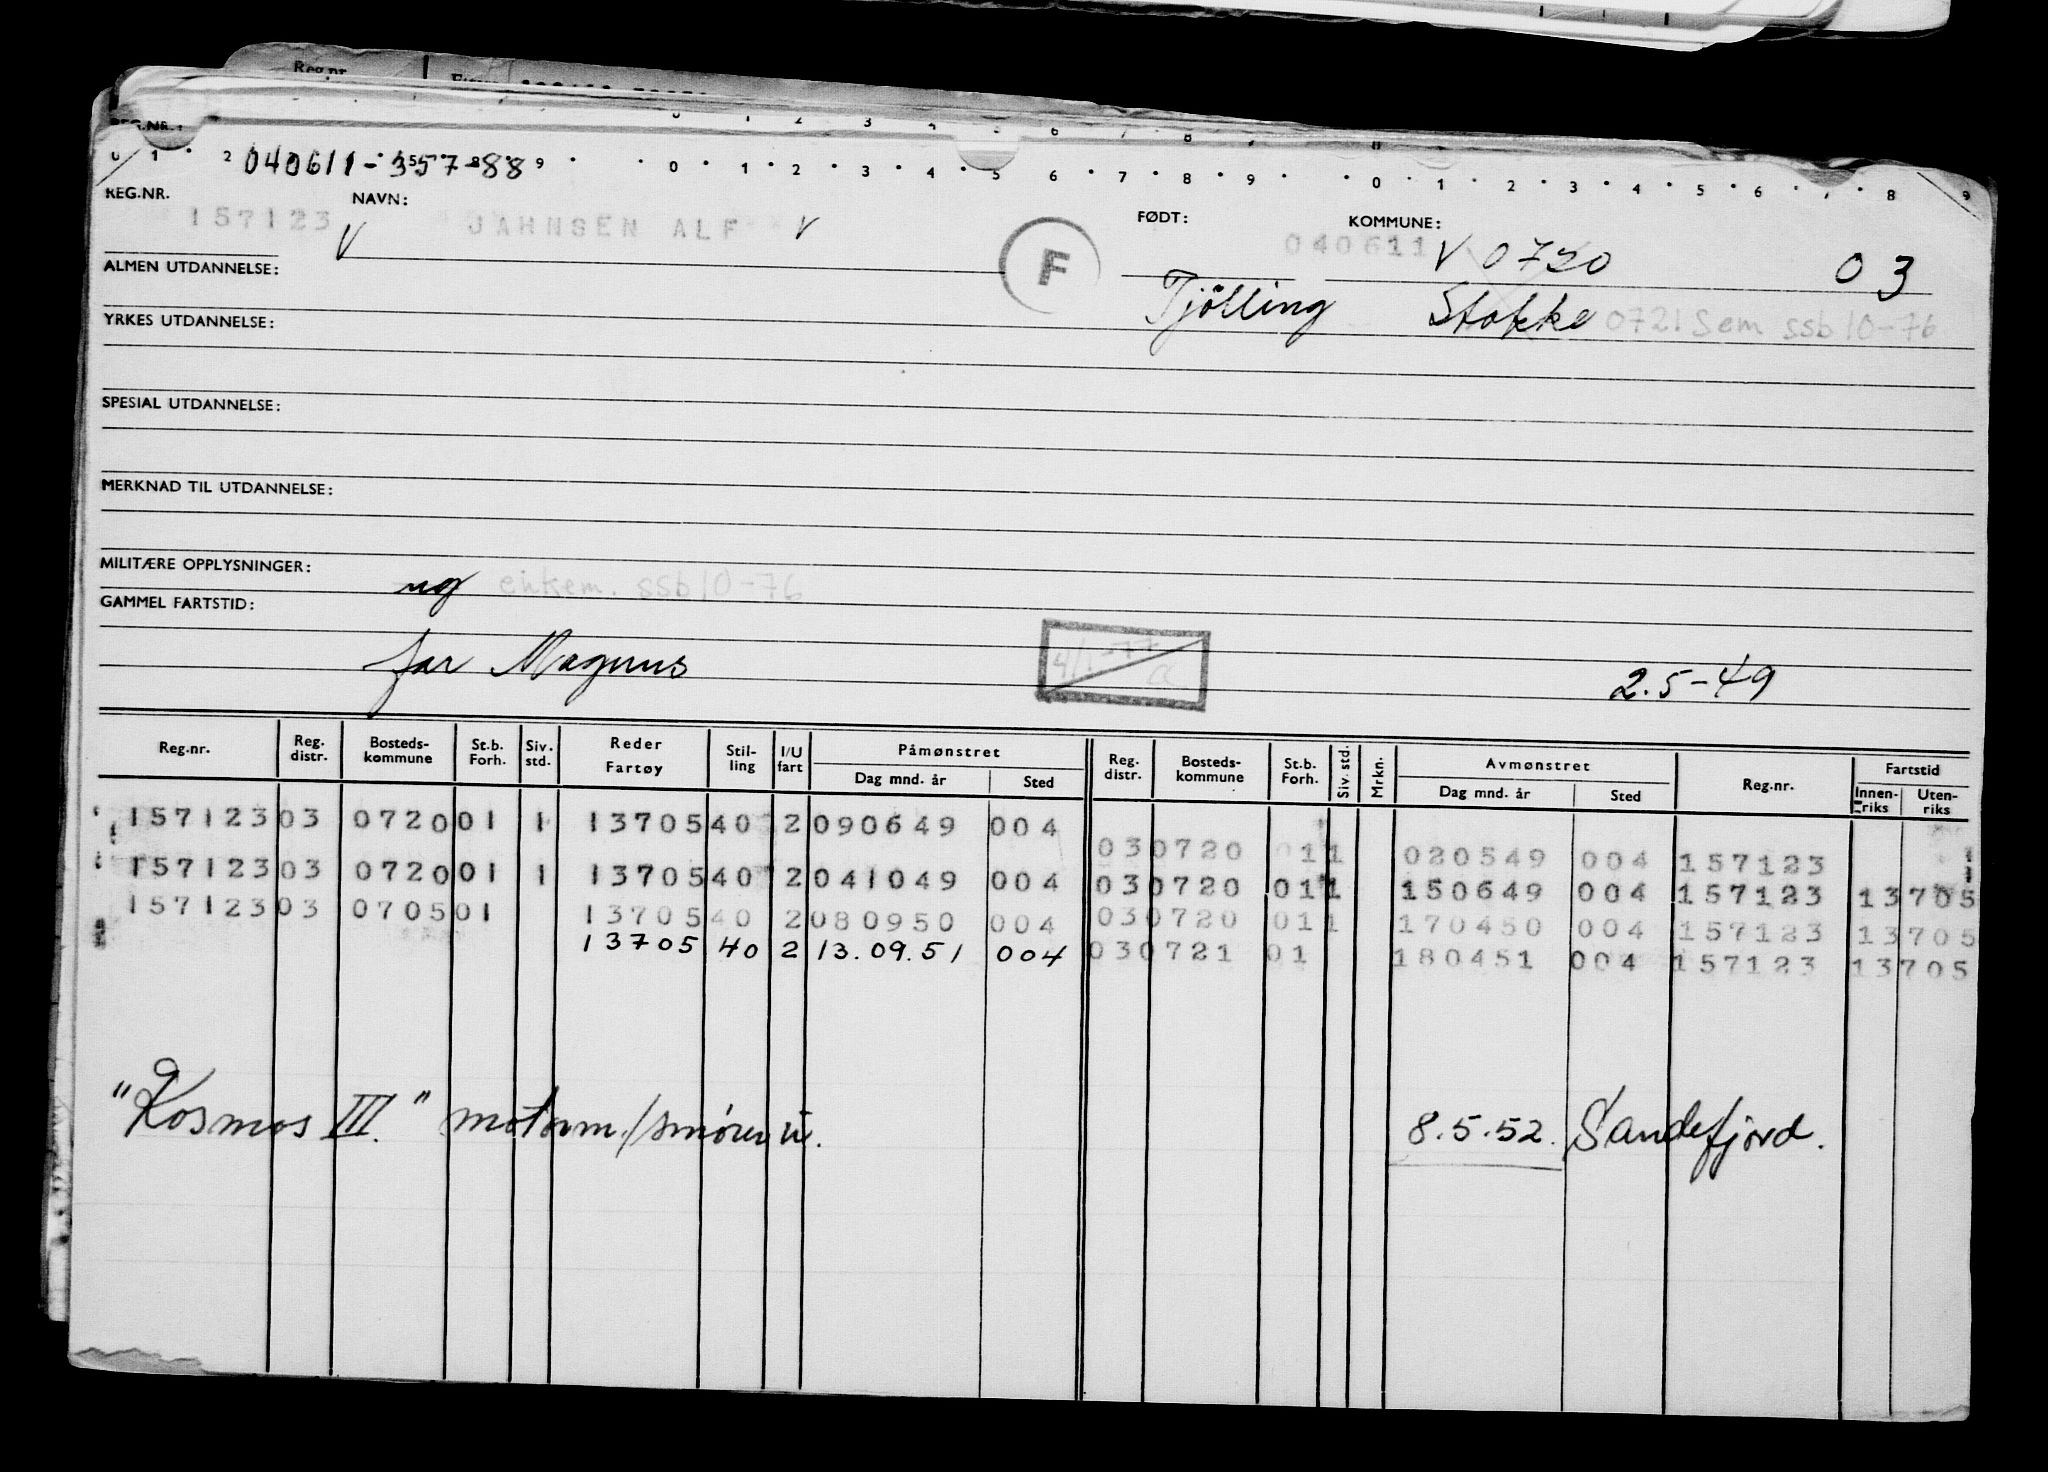 Reg.nr.
REG.NR.
0 1 2 3 4 5 6 7 8 9 0
0 1 2 040611-35788 9 0 1 2 3 4 5 6 7 8 9 0 1 2 3 4 5 6 7 8 9
REG.NR. NAVN: FØDT: KOMMUNE:
157123 V JAHNSEN ALF V F 040611 V 0720 03
ALMEN UTDANNELSE:
Tjølling Stokke 0721 Sem ssb 10-76
YRKES UTDANNELSE:
SPESIAL UTDANNELSE:
MERKNAD TIL UTDANNELSE:
MILITÆRE OPPLYSNINGER:
ug enkem. ssb 10-76
GAMMEL FARTSTID:
far Magnus 4/1-77 a 2.5-49
Reg.nr. Reg. distr. Bosteds-kommune St.b. Forh. Siv. std. Reder Fartøy Stil-ling I/U fart Påmønstret Dag mnd. år Sted Reg. distr. Bosteds-kommune St.b. Forh. Siv. std. Mrkn. Avmønstret Dag mnd. år Sted Reg.nr. Fartstid Innen-riks Uten-riks
157123 03 0720 01 1 13705 40 2 090649 004
03 0720 01 1 020549 004 157123
157123 03 0720 01 1 13705 40 2 041049 004 03 0720 01 1 150649 004 157123 13705
157123 03 0705 01 13705 40 2 080950 004 03 0720 01 1 170450 004 157123 13705
13705 40 2 13.09.51 004 03 0721 01 180451 004 157123 13705
"Kosmos III." motorm./smører u. 8.5.52. Sandefjord.